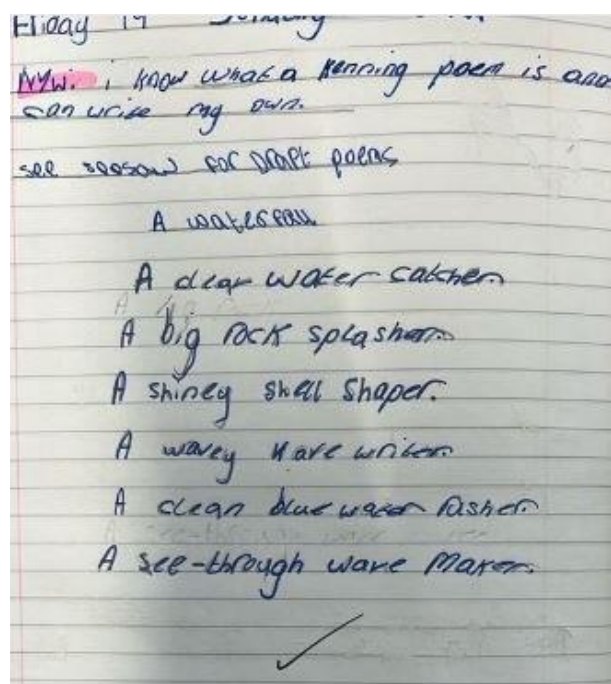 Friday 19
NYW: i know what a kenning poem is and
can write my own.
see seesaw for draft poems
A waterfall
A clear water catcher.
A big rock splasher.
A shiney shell shaper.
A wavey wave writer.
A clean blue water
A see-through wave maker.